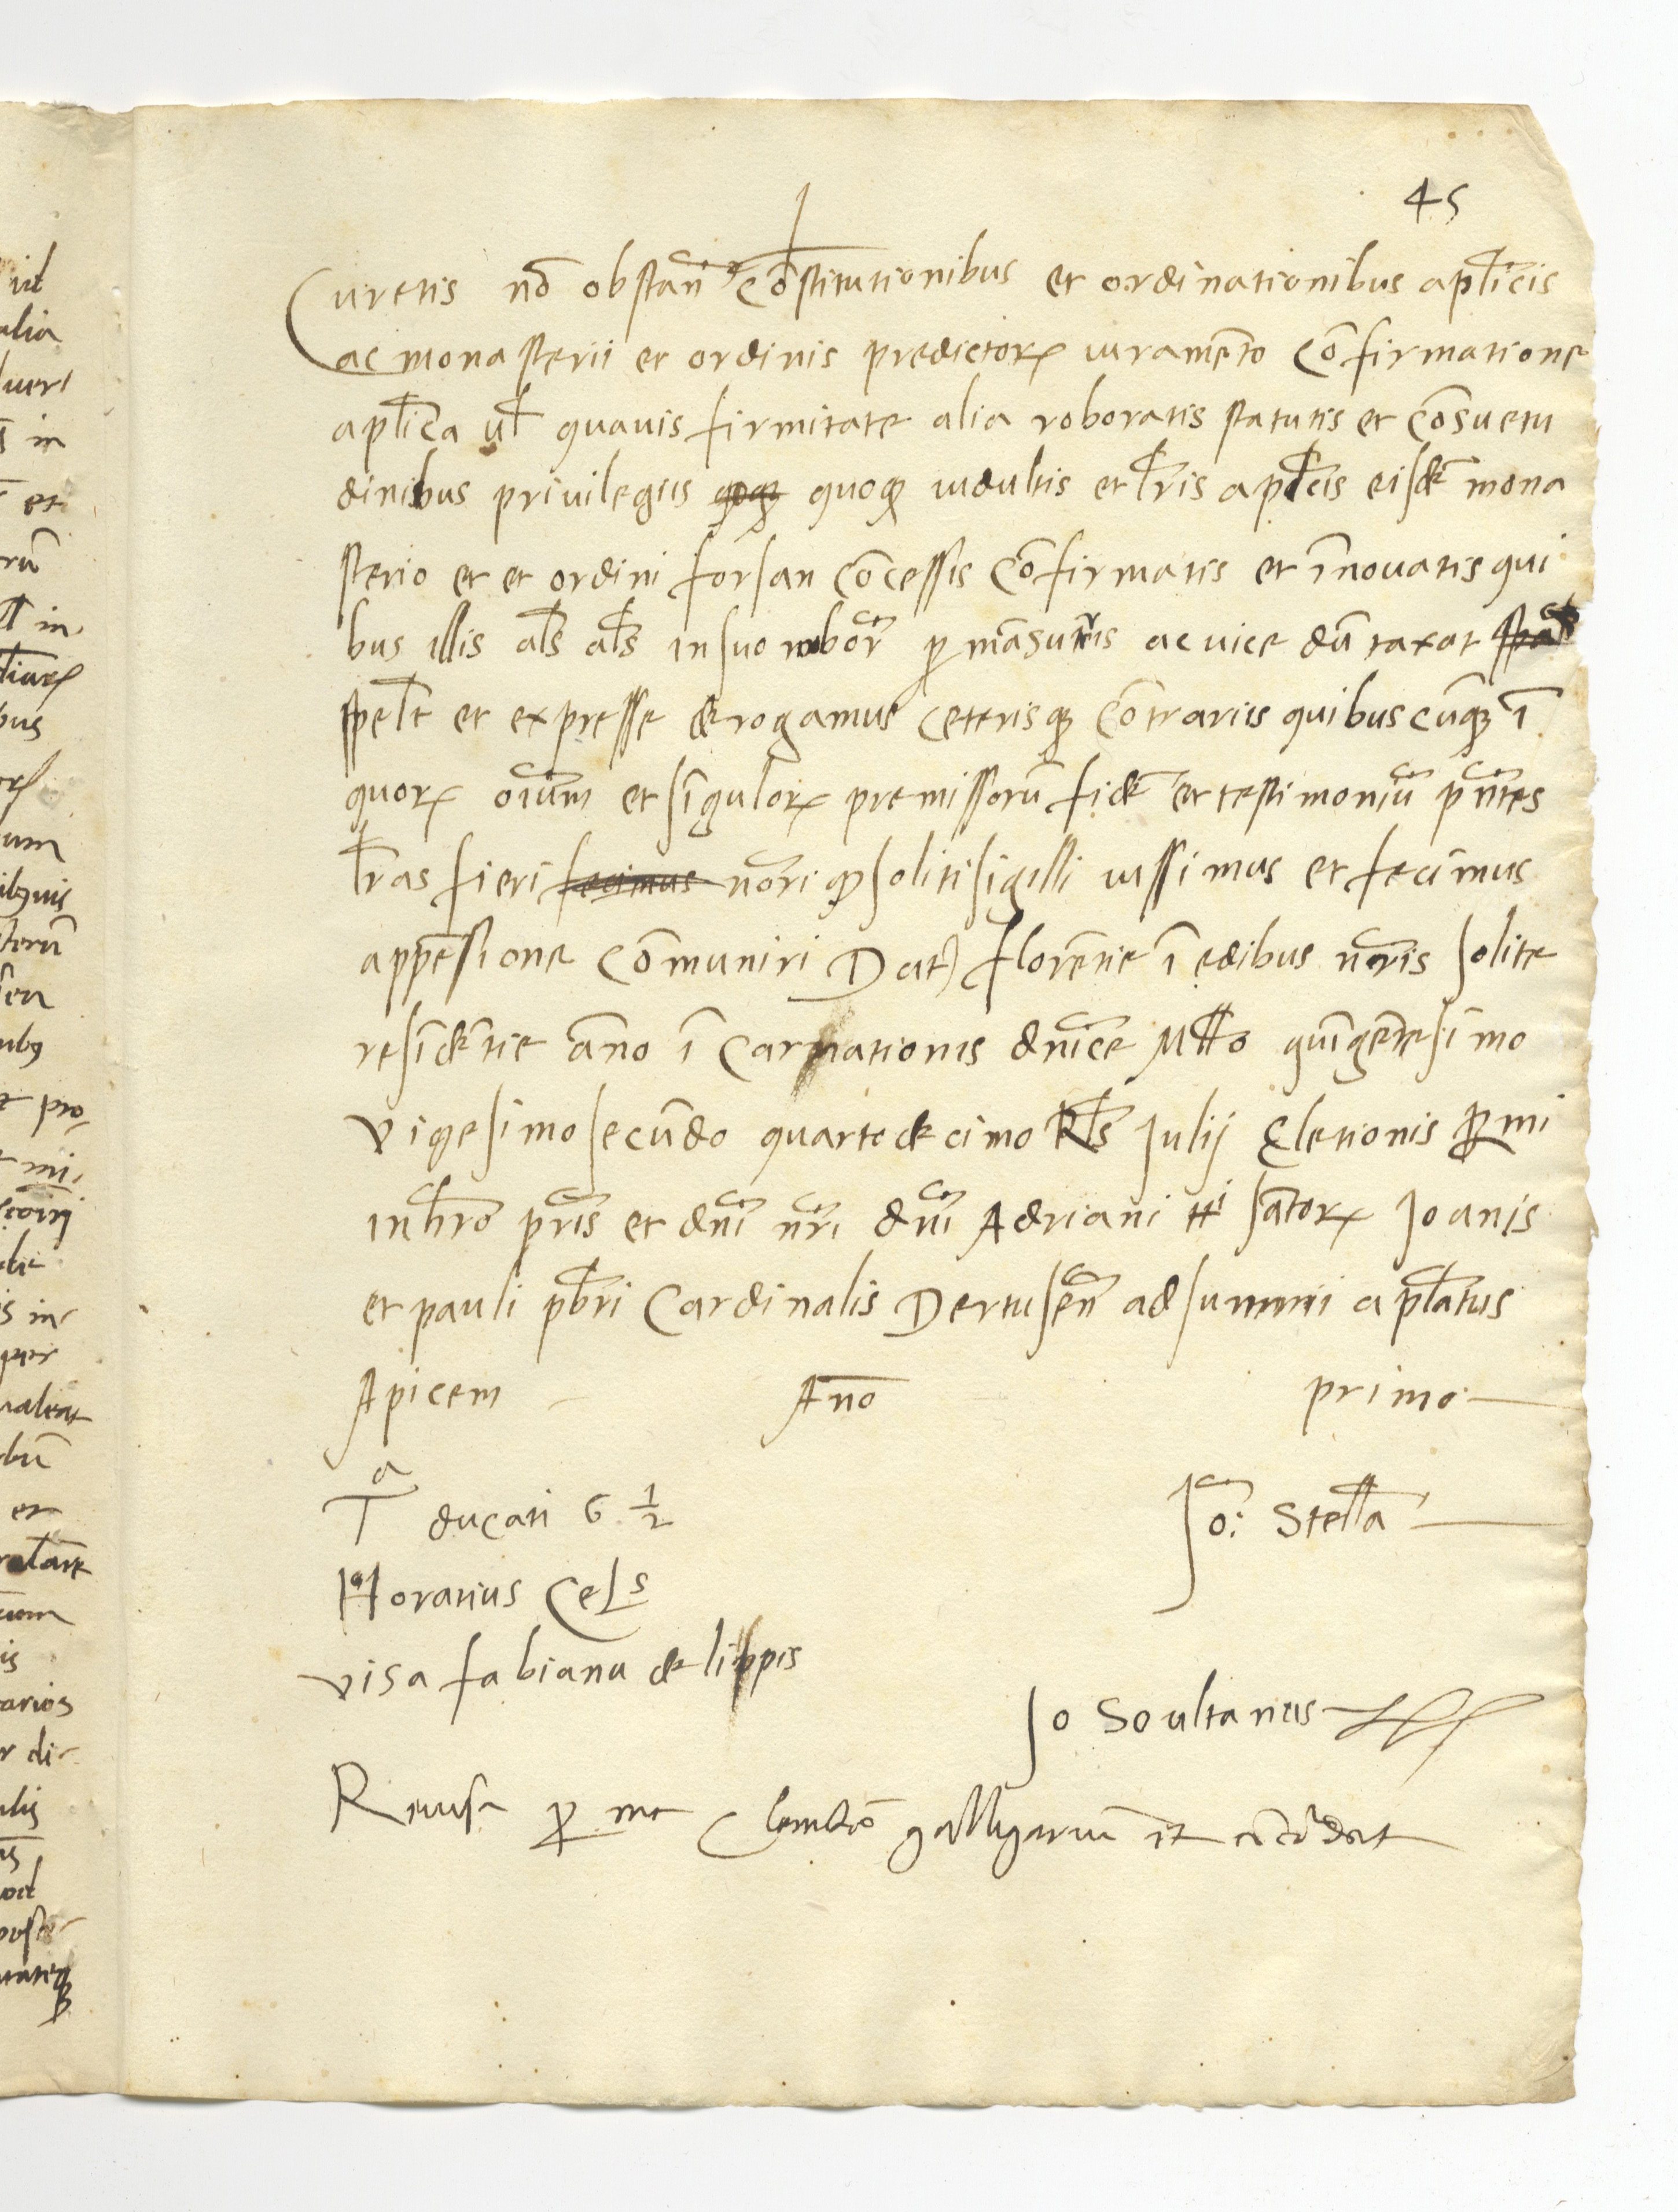 45
Curetis nō obstañ Cōstitutionibus et ordinationibus aplicis
ac monasterii et ordinis predictorꝝ iuramēto Cōfirmatione
aplica ul quauis firmitate alia roboratis statutis et Cōsuetu
dinibus privilegiis quoqꝫ indultis et lris aplicis eisdē mona
sterio et et ordini forsan Cōcessis Cōfirmatis et īnouatis qui
bus illis als als in suo robor̃ ꝑmāsuris ac vice dū taxat
spelr et expresse derogamus ceterisqꝫ Cōtrariis quibuscūqꝫ ī
quorꝝ oium et sīgulorꝝ premissorū fidē et testimoniū pntes
lras fieri fecimus nrōriqꝫ soliti sigilli iussimus et fecimus
appēsione Cōmuniri Dat) florētie ī edibus nris solite
residētie āno ī Carnationis dnice Mllo quīgētesimo
vigesimo secūdo quartodecimo Kls Julij Eletionis
et dni nri dni Adriani ttⁱ sātorꝝ Joanis
et pauli pbri Cardinalis Dertuseñ ad summi aplatus
Apicem Āno primo
Tᵃ ducati 6 1/2
Jo: Stella
Horatius Cels
visa fabianu de lippis
Jo Soultanus
Revisa ꝑ me